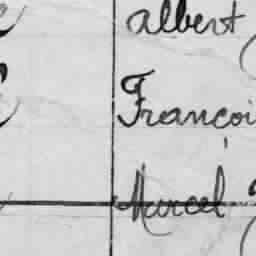 albert
Françoi
Marcel